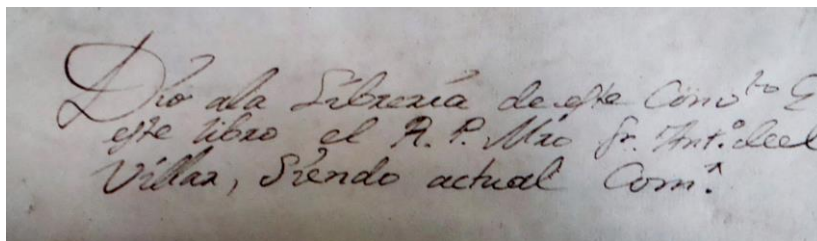 Dio ala Libreria de este Conv.to
este libro el R. P. Mro fr. Ant.o de el
Villar, Siendo actual Com.r